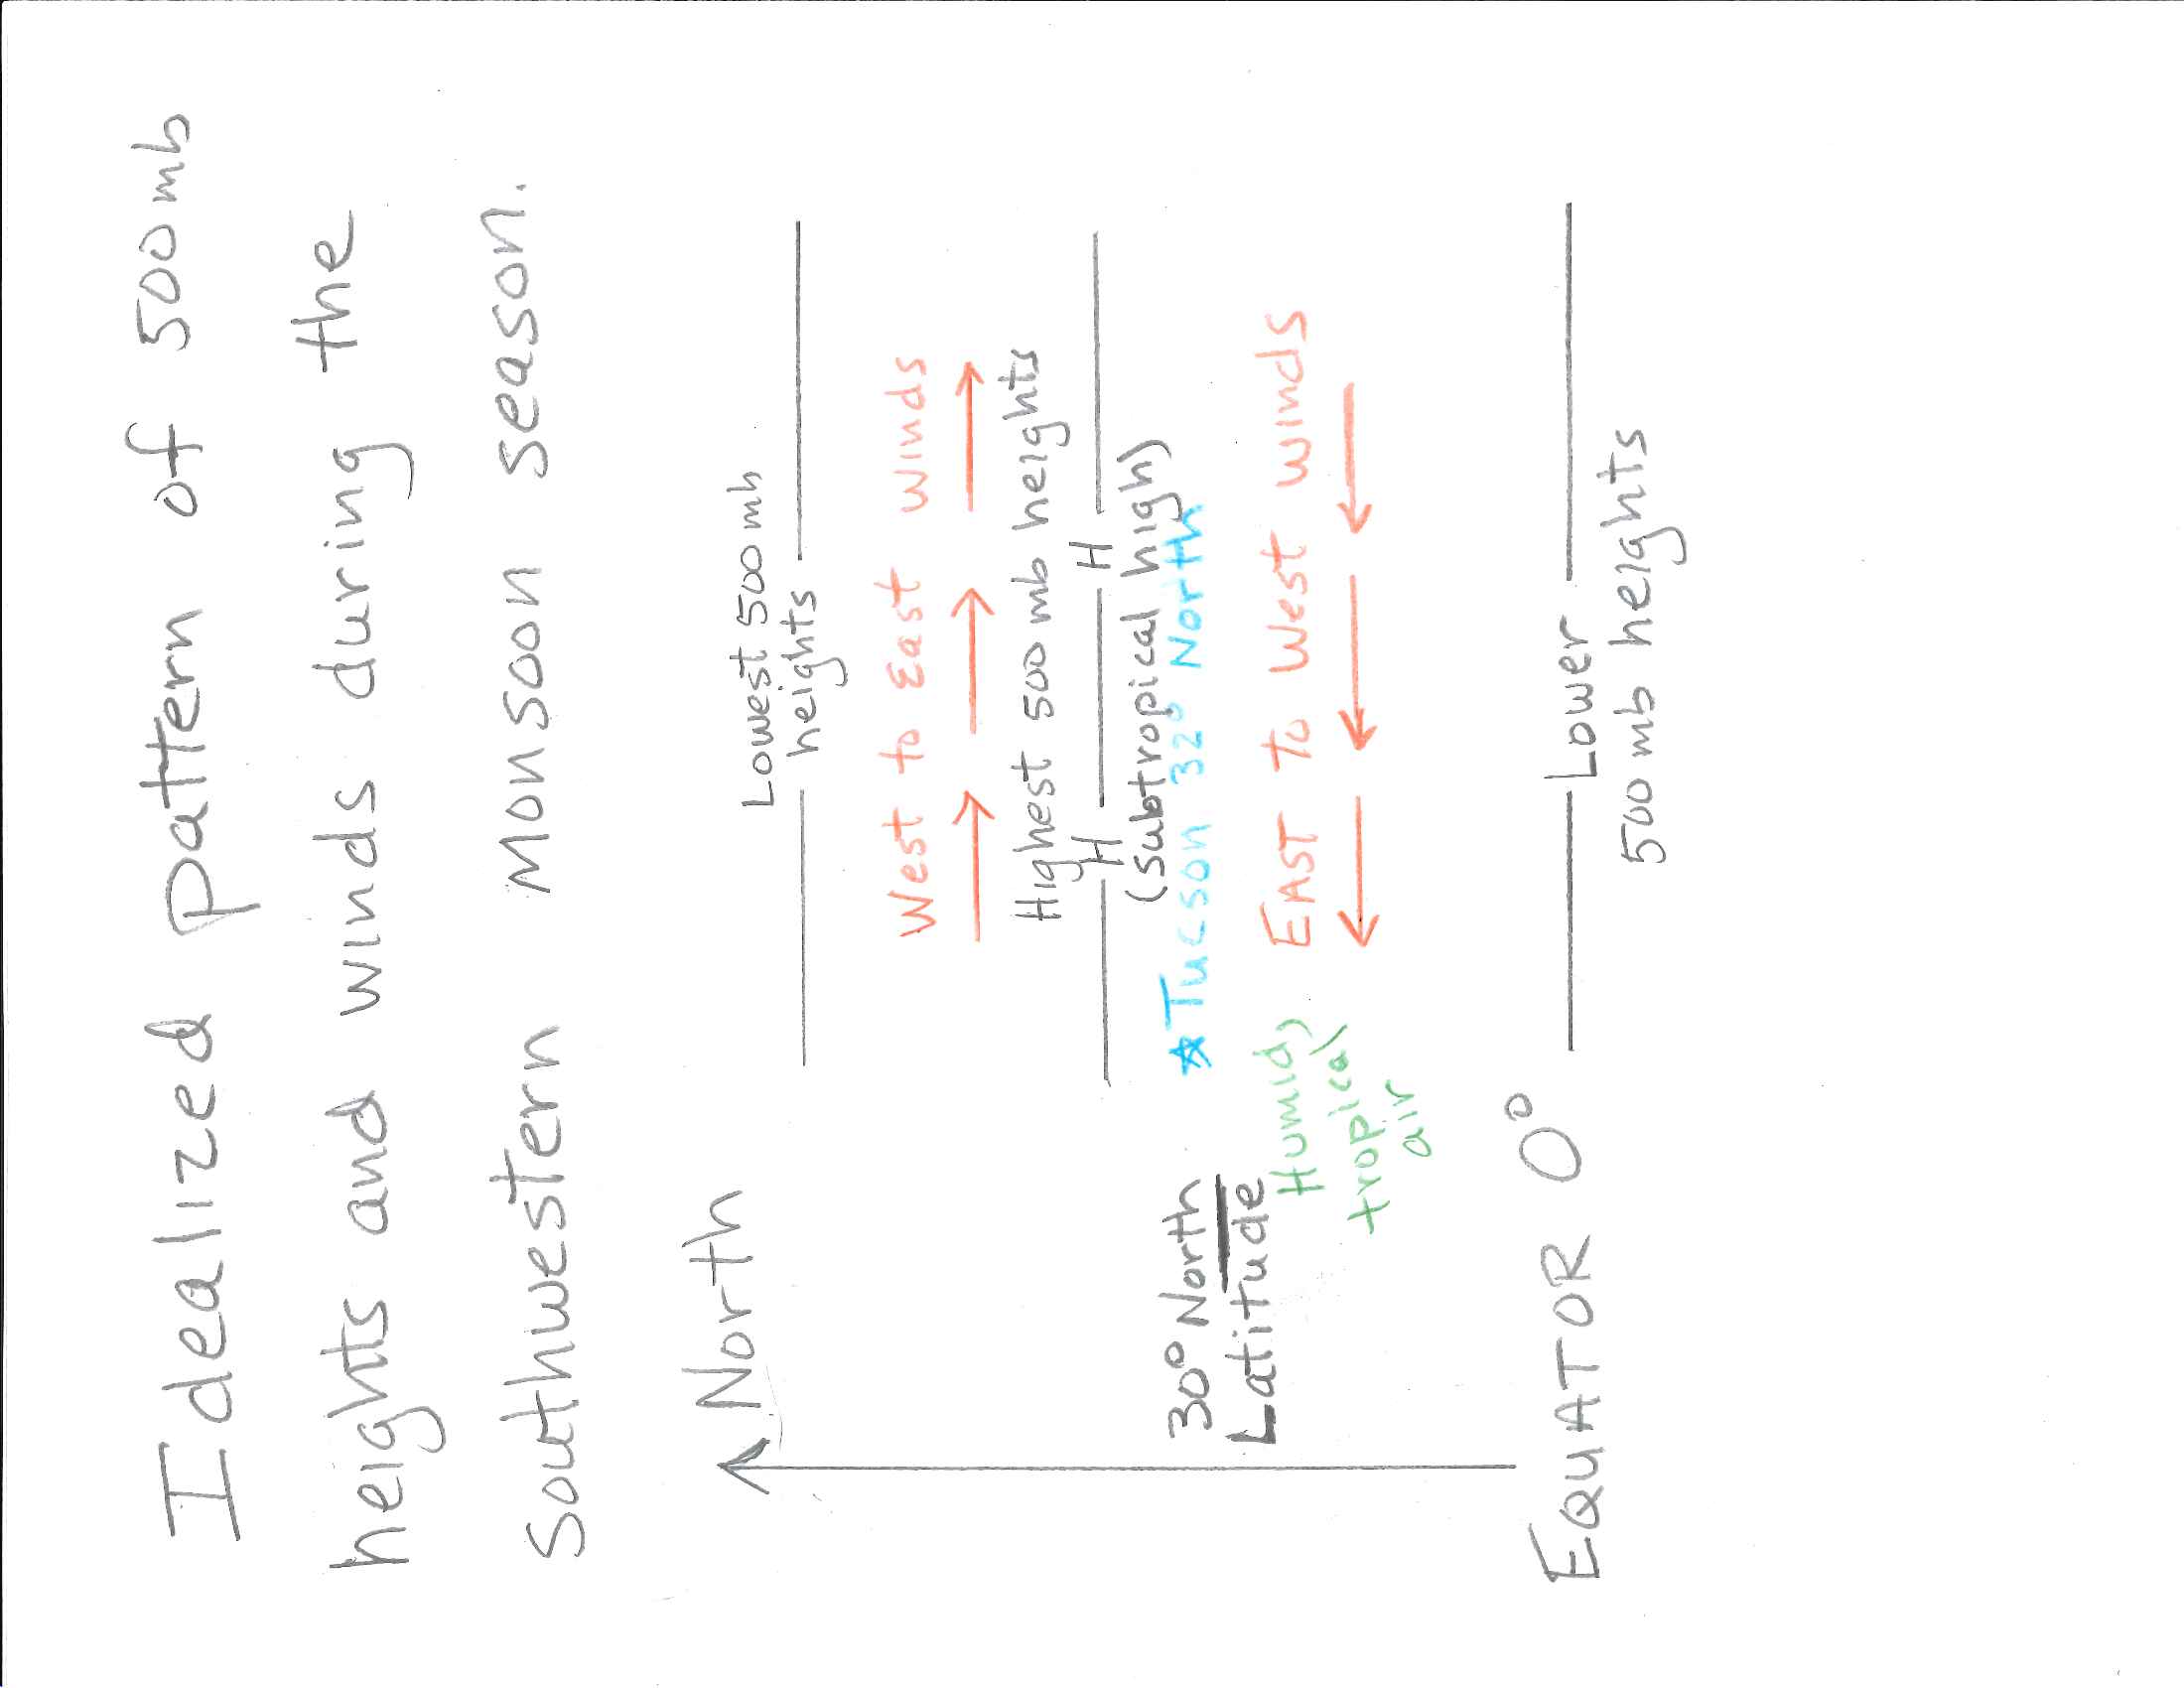 Idealized pattern of 500 mb
heights and winds during the
southwestern monsoon season.
North
Lowest 500 mb
heights
West to East winds
Highest 500 mb heights
H H
(subtropical high)
Tucson 32° North
30° North
Latitude
EAST To West winds
Humid,
tropical
air
EQUATOR 0°
Lower
500 mb heights